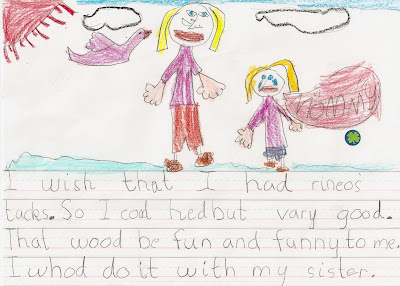 MOMMY
I wish that I had rineo's
tacks. So I cod hedbut vary good.
That wood be fun and funny to me.
I whod do it with my sister.